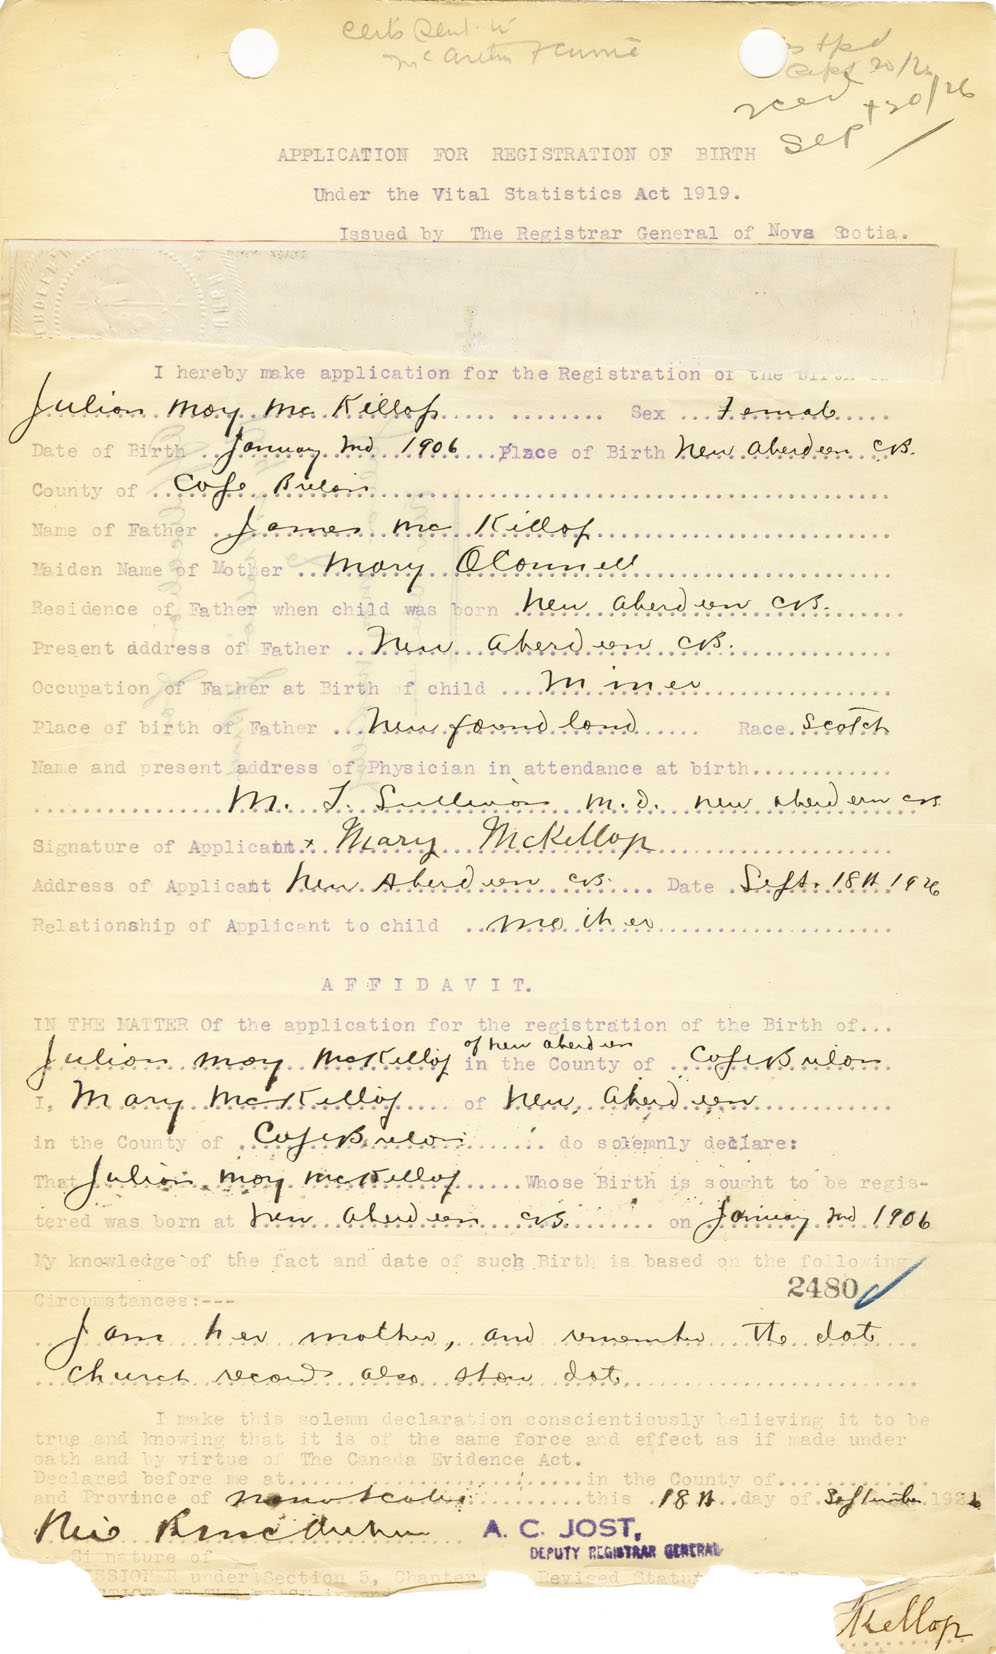 Certs Sent to
McArthur & Currie
Sept 20/26
rced
Sept 20/26
APPLICATION FOR REGISTRATION OF BIRTH
Under the Vital Statistics Act 1919.
Issued by The Registrar General of Nova Scotia.
I hereby make application for the Registration of the Birth
Julian May McKillop Sex Female
Date of Birth January 2nd 1906 Place of Birth New Aberdeen CB.
County of Cape Breton
Name of Father James McKillop
Maiden Name of Mother Mary OConnell
Residence of Father when child was born New Aberdeen CB.
Present address of Father New Aberdeen CB.
Occupation of Father at Birth of child Miner
Place of birth of Father Newfoundland Race Scotch
Name and present address of Physician in attendance at birth
M. T. Sullivan M.D. New Aberdeen CB.
Signature of Applicant x Mary McKellop
Address of Applicant New Aberdeen CB. Date Sept. 18th 1926
Relationship of Applicant to child mother
AFFIDAVIT.
IN THE MATTER Of the application for the registration of the Birth of...
Julian May McKillop of New Aberdeen in the County of Cape Breton
I, Mary McKillop of New Aberdeen
in the County of Cape Breton do solemnly declare:
That Julian May McKillop Whose Birth is sought to be regis-
tered was born at New Aberdeen CB. on January 2nd 1906
My knowledge of the fact and date of such Birth is based on the following
2480
Circumstances:---
I am her mother, and remember the date
church records also show date
I make this solemn declaration conscientiously believing it to be
true and knowing that it is of the same force and effect as if made under
oath and by virtue of The Canada Evidence Act.
Declared before me at in the County of
and Province of Nova Scotia this 18th day of September 1926
A. C. JOST,
DEPUTY REGISTRAR GENERAL
Signature of
SSIONER under Section 5, Chapter Revised Statut
Kellop